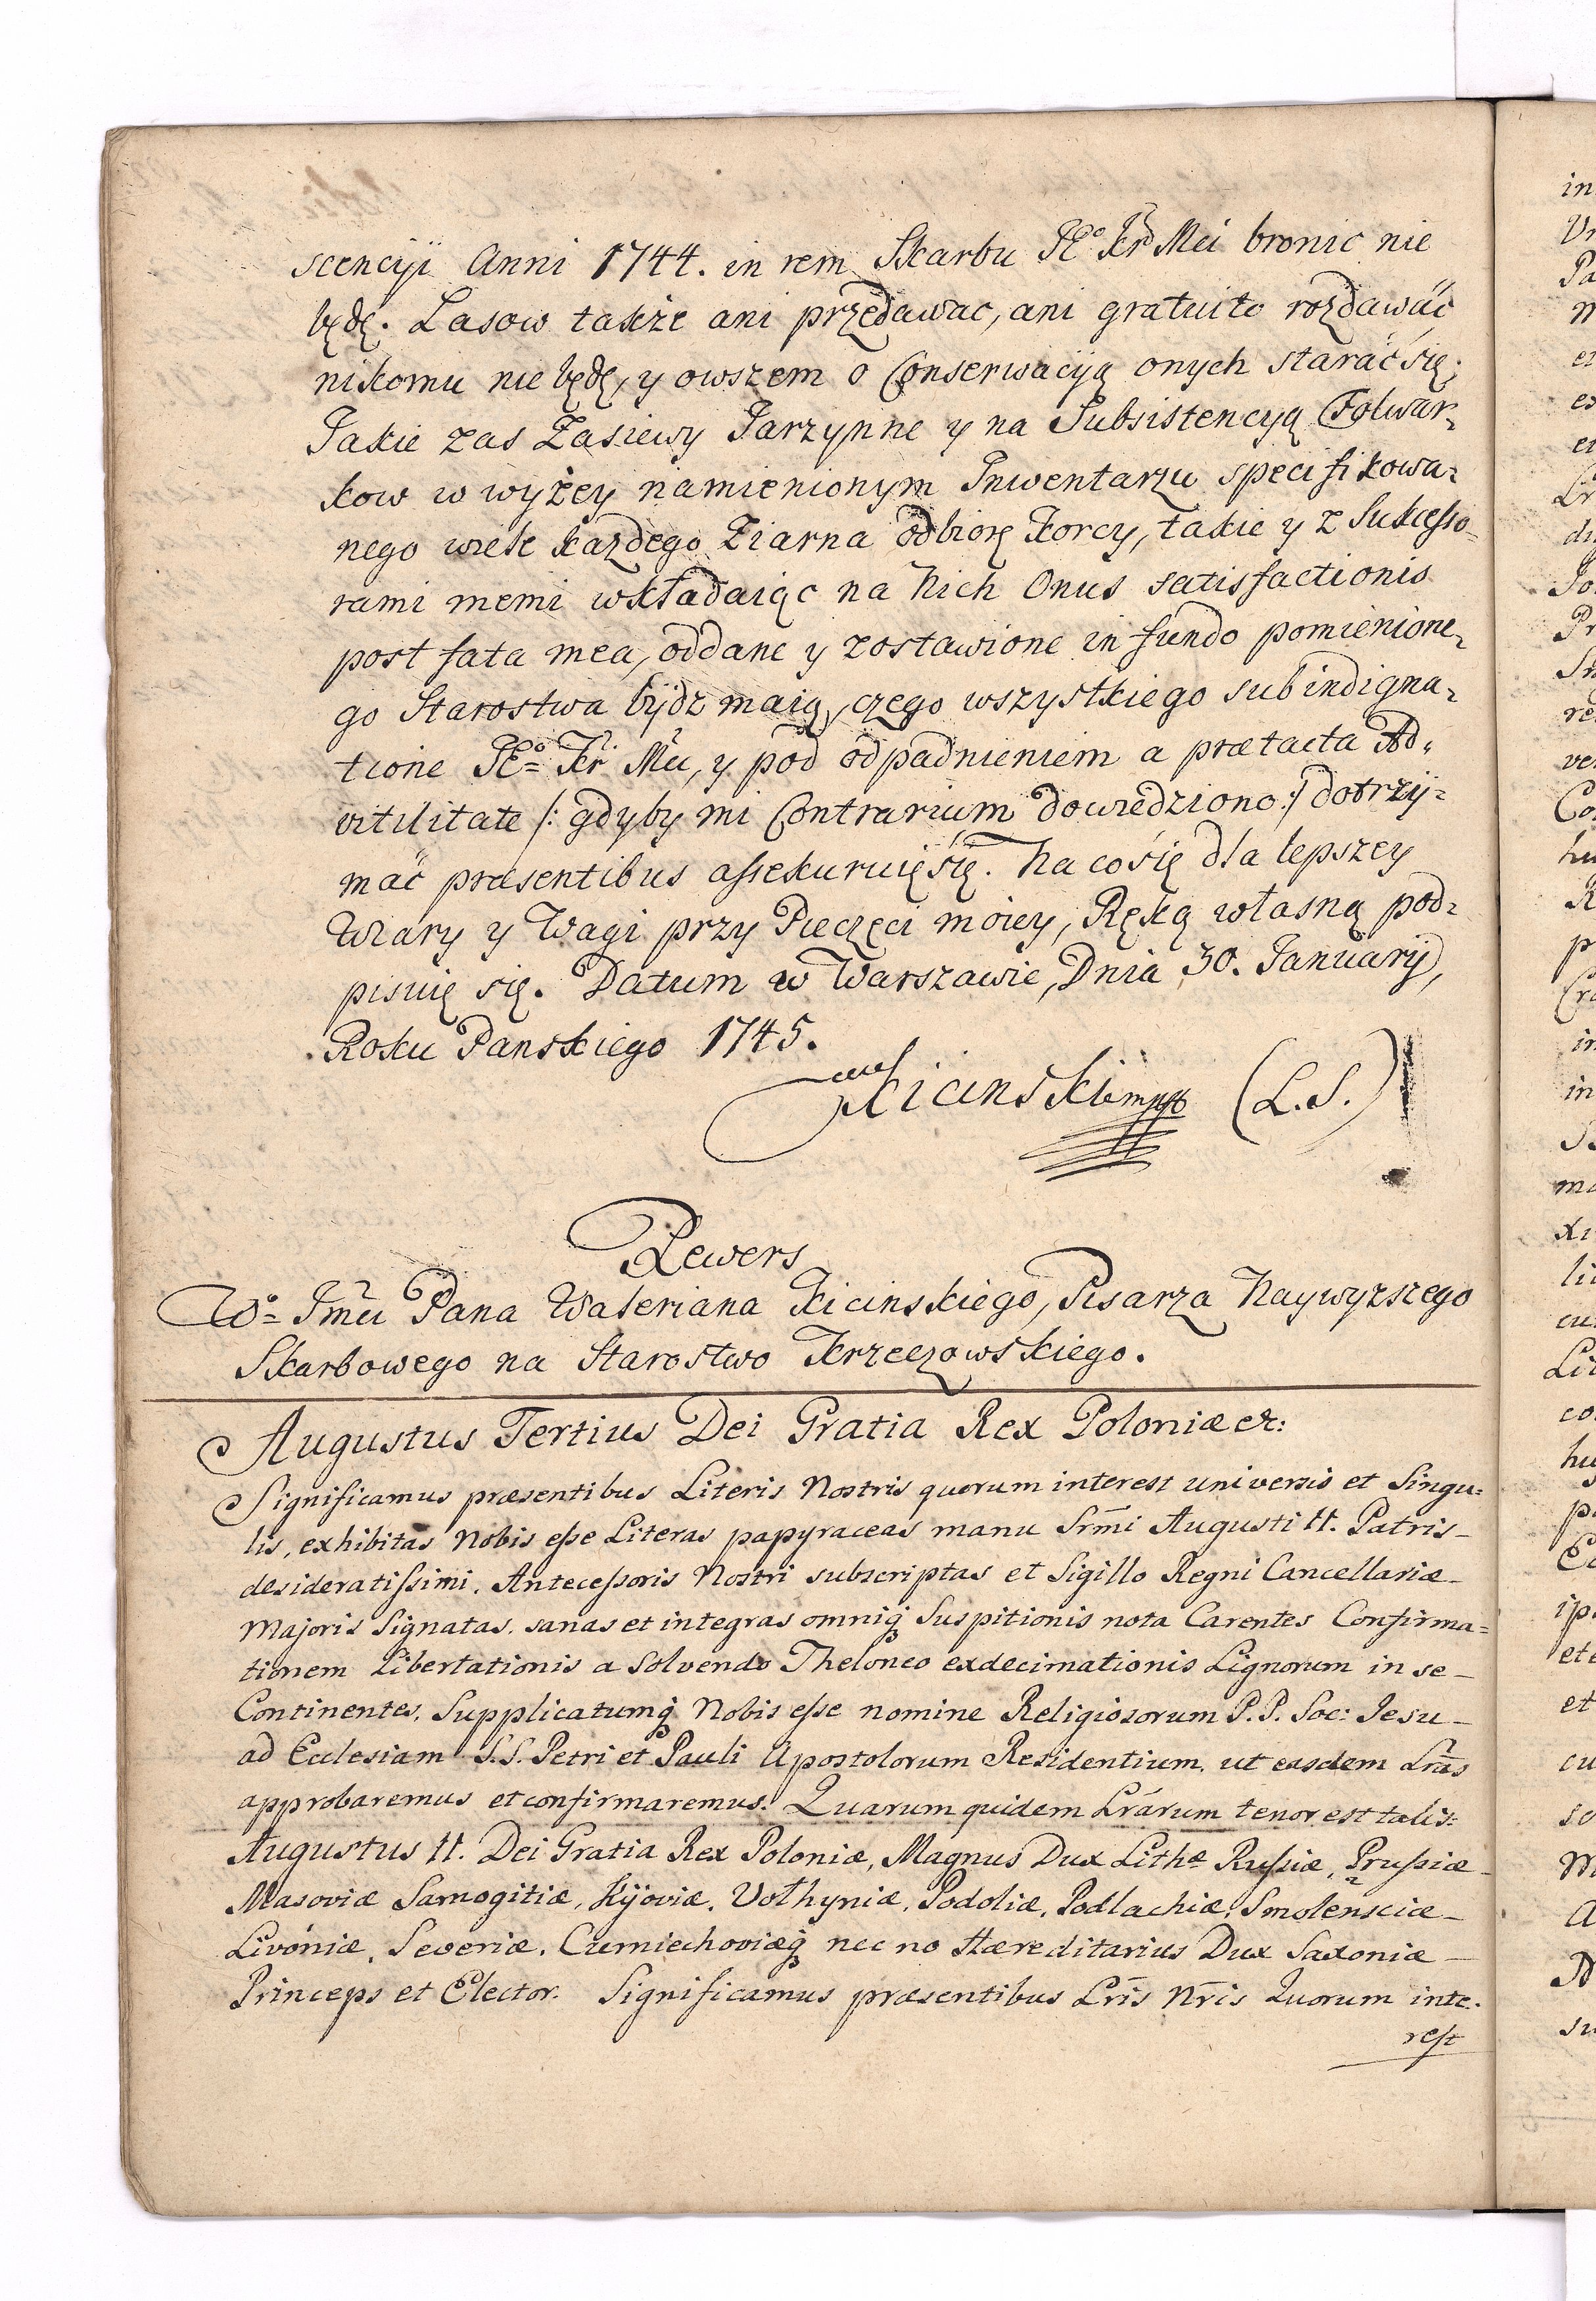 scencyi Anni 1744. in rem Skarbu Jº Kr Mci bronic nie
będę. Lasow także ani przedawac, ani gratuito rozdawać
nikomu nie będę, y owszem o Conserwacyą onych starać się;
Jakie zas Zasiewy Jarzynne y na Subsistencyą Folwar-
kow w wyżey namienionym Inwentarzu specifikowa-
nego wiele każdego Ziarna odbiorę Korcy, takie y z Sukcesso-
rami memi wkładaiąc na Nich Onus satisfactionis
post fata mea, oddane y zostawione in fundo pomienione-
go Starostwa bydz maią, czego wszystkiego sub indigna-
tione Jº Kr Mci, y pod odpadnieniem a prætacta Ad-
vitilitate /: gdyby mi Contrarium dowiedziono :/ dotrzy-
mać præsentibus assekuruię się. Na co się dla lepszey
Wiary y Wagi przy Pieczęci moiey, Ręką własną pod-
pisuię się. Datum w Warszawie, Dnia 30. January,
Roku Panskiego 1745.
Kicinski mpp (L.S.)
Rewers
Wº Jmci Pana Waleriana Kicinskiego, Pisarza Naywyzszego
Skarbowego na Starostwo Krzeczowskiego.
Augustus Tertius Dei Gratia Rex Poloniæ etc:
Significamus præsentibus Literis Nostris quorum interest universis et Singu-
lis, exhibitas Nobis esse Literas papyraceas manu Srmi Augusti II. Patris
desideratissimi, Antecessoris Nostri subscriptas et Sigillo Regni Cancellariæ
Majoris Signatas, sanas et integras omniq Suspitionis nota Carentes Confirma-
tionem Libertationis a Solvendo Theloneo exdecimationis Lignorum in se
Continentes, Supplicatumq Nobis esse nomine Religiosorum P.P. Soc: Jesu
ad Ecclesiam S.S. Petri et Pauli Apostolorum Residentium, ut easdem Lras
approbaremus et confirmaremus. Quarum quidem Lrarum tenor est talis:
Augustus II. Dei Gratia Rex Poloniæ, Magnus Dux Lithæ Russiæ, Prussiæ
Masoviæ Samogitiæ, Kijoviæ, Volhyniæ, Podoliæ, Podlachiæ, Smolensciæ
Livoniæ, Severiæ, Czerniechoviæq nec no Hæreditarius Dux Saxoniæ
Princeps et Elector. Significamus præsentibus Lris Nris Quorum inte-
rest